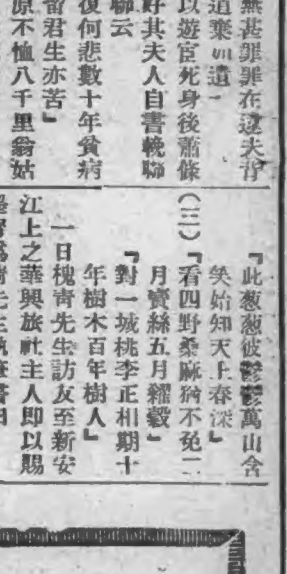 無甚罪罪在違夫背
道棄𠮟遺
以遊宦死身後蕭條
好其夫人自書輓聯
聯云
復何悲數十年貧病
君生亦苦』
原不恤八千里翁姑
『此葱葱彼鬱鬱萬山含
笑始知天上春深』
(三)『看四野桑麻猶不免二
月賣絲五月糶穀』
『對一城桃李正相期十
年樹木百年樹人』
一日槐靑先生訪友至新安
江上之華興旅社主人即以賜